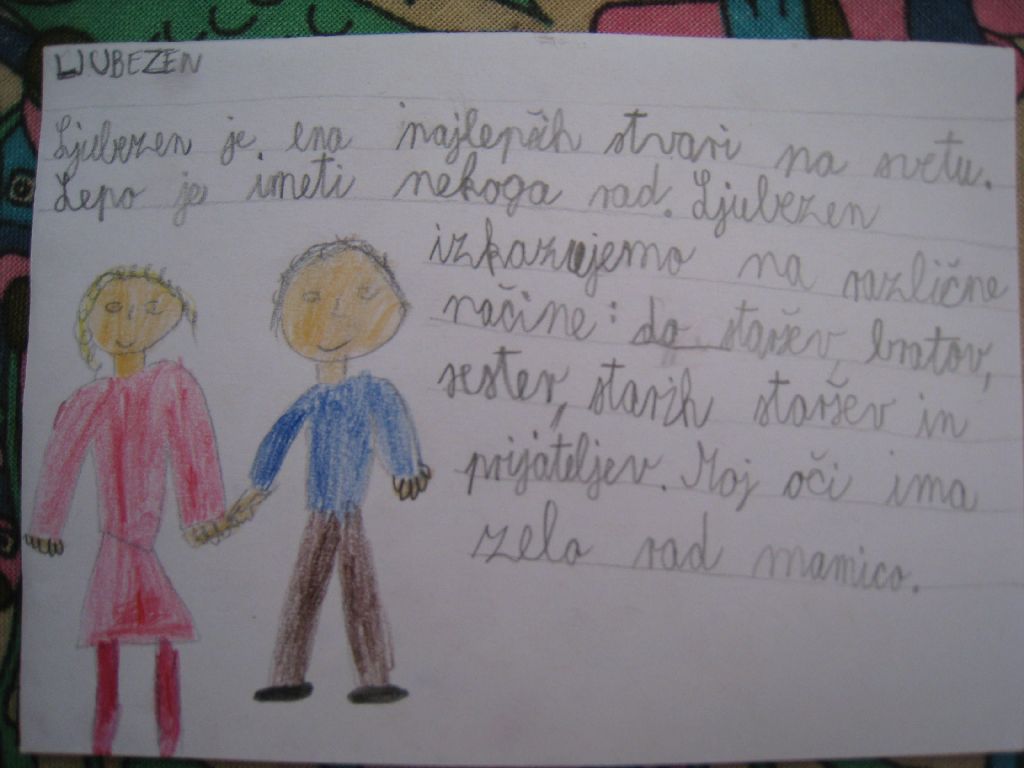 LJUBEZEN
Ljubezen je ena najlepših stvari na svetu.
Lepo je imeti nekoga rad. Ljubezen
izkazujemo na različne
načine: do staršev, bratov,
sester, starih staršev in
prijateljev. Moj oči ima
zelo rad mamico.